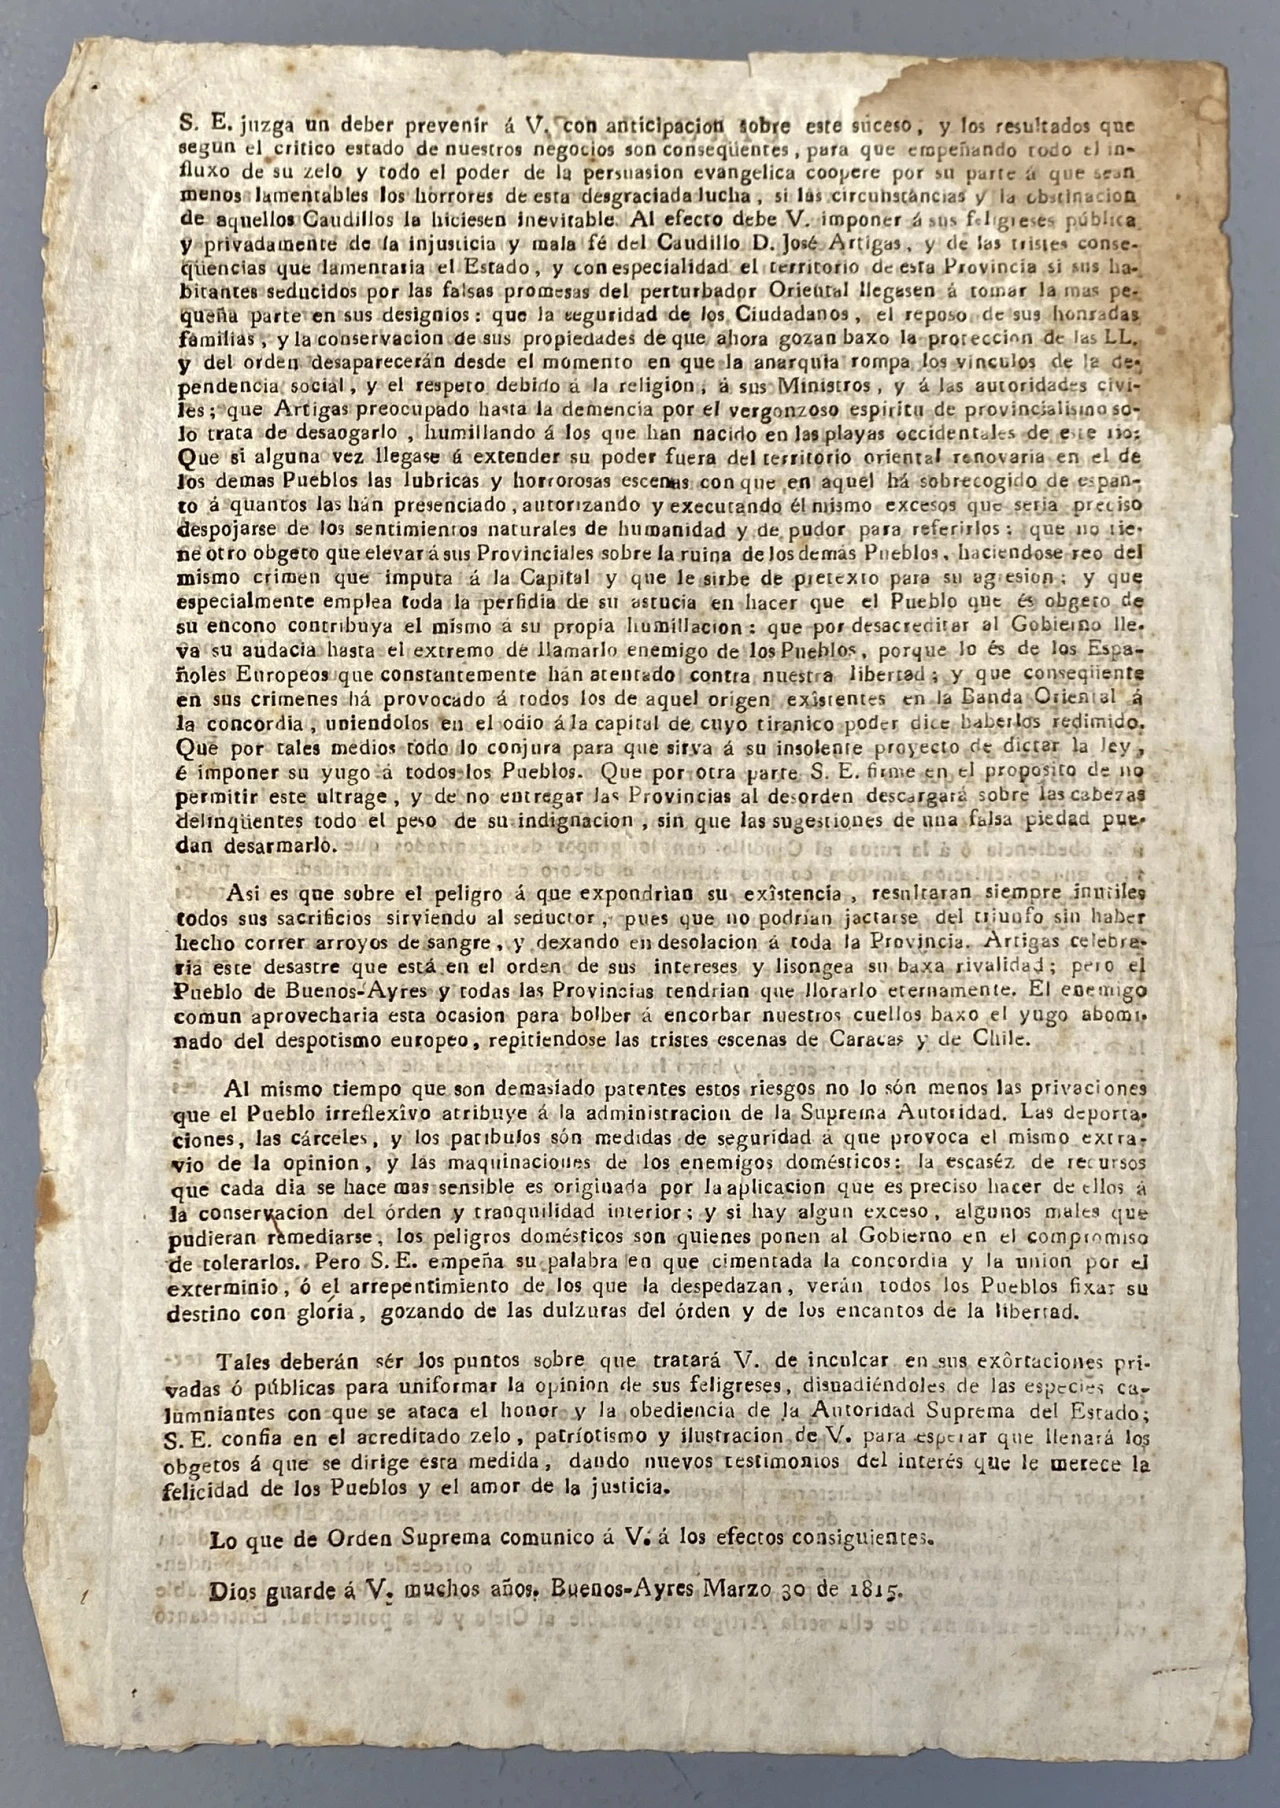 S. E. juzga un deber prevenir á V. con anticipacion sobre este suceso, y los resultados que
segun el critico estado de nuestros negocios son conseqüentes, para que empeñando todo el in-
fluxo de su zelo y todo el poder de la persuasion evangelica coopere por su parte á que sean
menos lamentables los horrores de esta desgraciada lucha, si las circunstancias y la obstinacion
de aquellos Caudillos la hiciesen inevitable. Al efecto debe V. imponer á sus feligreses pública
y privadamente de la injusticia y mala fé del Caudillo D. José Artigas, y de las tristes conse-
qüencias que lamentaria el Estado, y con especialidad el territorio de esta Provincia si sus ha-
bitantes seducidos por las falsas promesas del perturbador Oriental llegasen á tomar la mas pe-
queña parte en sus designios: que la seguridad de los Ciudadanos, el reposo de sus honradas
familias, y la conservacion de sus propiedades de que ahora gozan baxo la proteccion de las LL.
y del orden desaparecerán desde el momento en que la anarquia rompa los vinculos de la de-
pendencia social, y el respeto debido á la religion, á sus Ministros, y á las autoridades civi-
les; que Artigas preocupado hasta la demencia por el vergonzoso espiritu de provincialismo so-
lo trata de desaogarlo, humillando á los que han nacido en las playas occidentales de este rio:
Que si alguna vez llegase á extender su poder fuera del territorio oriental renovaria en el de
los demas Pueblos las lubricas y horrorosas escenas con que en aquel há sobrecogido de espan-
to á quantos las hán presenciado, autorizando y executando él mismo excesos que seria preciso
despojarse de los sentimientos naturales de humanidad y de pudor para referirlos: que no tie-
ne otro obgeto que elevar á sus Provinciales sobre la ruina de los demás Pueblos, haciendose reo del
mismo crimen que imputa á la Capital y que le sirbe de pretexto para su agresion; y que
especialmente emplea toda la perfidia de su astucia en hacer que el Pueblo que és obgeto de
su encono contribuya el mismo á su propia humillacion: que por desacreditar al Gobierno lle-
va su audacia hasta el extremo de llamarlo enemigo de los Pueblos, porque lo és de los Espa-
ñoles Europeos que constantemente hán atentado contra nuestra libertad; y que conseqüente
en sus crimenes há provocado á todos los de aquel origen exîstentes en la Banda Oriental á
la concordia, uniendolos en el odio á la capital de cuyo tiranico poder dice haberlos redimido.
Que por tales medios todo lo conjura para que sirva á su insolente proyecto de dictar la ley,
é imponer su yugo á todos los Pueblos. Que por otra parte S. E. firme en el proposito de no
permitir este ultrage, y de no entregar las Provincias al desorden descargará sobre las cabezas
delinqüentes todo el peso de su indignacion, sin que las sugestiones de una falsa piedad pue-
dan desarmarlo.
Asi es que sobre el peligro á que expondrian su exîstencia, resultaran siempre inutiles
todos sus sacrificios sirviendo al seductor, pues que no podrian jactarse del triunfo sin haber
hecho correr arroyos de sangre, y dexando en desolacion á toda la Provincia. Artigas celebra-
ria este desastre que está en el orden de sus intereses y lisongea su baxa rivalidad; pero el
Pueblo de Buenos-Ayres y todas las Provincias tendrian que llorarlo eternamente. El enemigo
comun aprovecharia esta ocasion para bolber á encorbar nuestros cuellos baxo el yugo abomi-
nado del despotismo europeo, repitiendose las tristes escenas de Caracas y de Chile.
Al mismo tiempo que son demasiado patentes estos riesgos no lo són menos las privaciones
que el Pueblo irreflexîvo atribuye á la administracion de la Suprema Autoridad. Las deporta-
ciones, las cárceles, y los patibulos són medidas de seguridad á que provoca el mismo extra-
vio de la opinion, y las maquinaciones de los enemigos domésticos: la escaséz de recursos
que cada dia se hace mas sensible es originada por la aplicacion que es preciso hacer de ellos á
la conservacion del órden y tranquilidad interior; y si hay algun exceso, algunos males que
pudieran remediarse, los peligros domésticos son quienes ponen al Gobierno en el compromiso
de tolerarlos. Pero S. E. empeña su palabra en que cimentada la concordia y la union por el
exterminio, ó el arrepentimiento de los que la despedazan, verán todos los Pueblos fixar su
destino con gloria, gozando de las dulzuras del órden y de los encantos de la libertad.
Tales deberán sér los puntos sobre que tratará V. de inculcar en sus exôrtaciones pri-
vadas ó públicas para uniformar la opinion de sus feligreses, disuadiéndoles de las especies ca-
lumniantes con que se ataca el honor y la obediencia de la Autoridad Suprema del Estado;
S. E. confia en el acreditado zelo, patríotismo y ilustracion de V. para esperar que llenará los
obgetos á que se dirige esta medida, dando nuevos testimonios del interés que le merece la
felicidad de los Pueblos y el amor de la justicia.
Lo que de Orden Suprema comunico á V. á los efectos consiguientes.
Dios guarde á V. muchos años. Buenos-Ayres Marzo 30 de 1815.